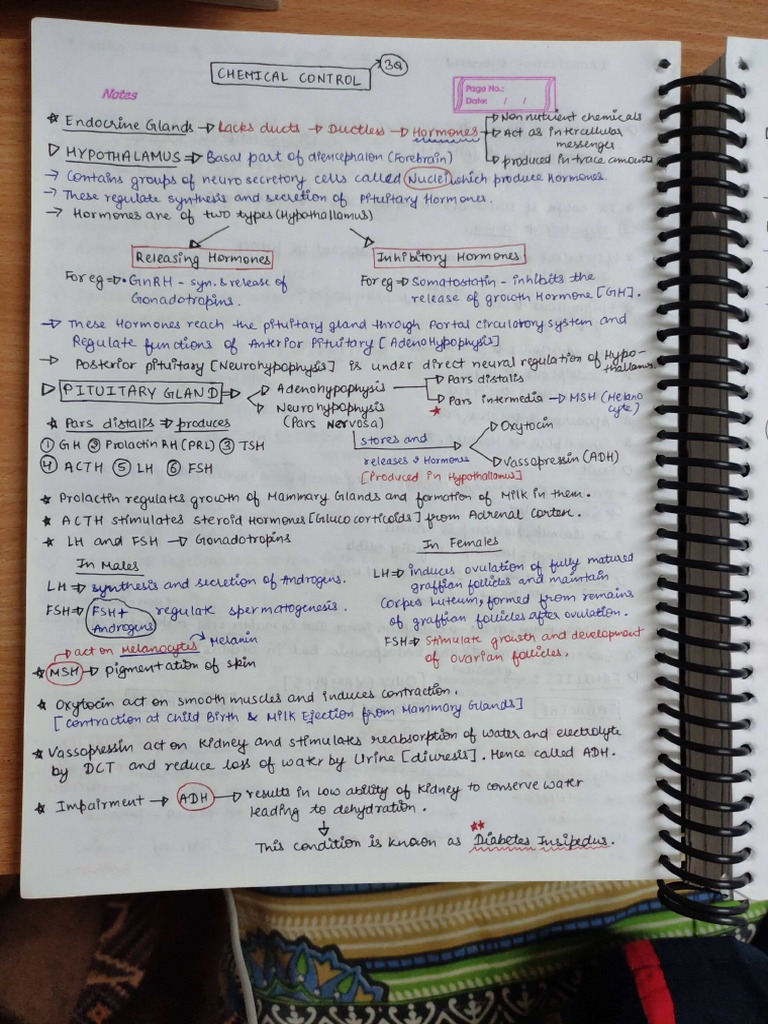 CHEMICAL CONTROL → 3Q
Notes
Page No.:
Date: / /
* Endocrine Glands → Lacks ducts → Ductless → Hormones
→ Non nutrient chemicals
→ Act as intercellular messengers
→ produced in trace amounts
▷ HYPOTHALAMUS ⇒ Basal part of diencephalon (Forebrain)
→ Contains groups of neuro secretory cells called Nuclei which produce Hormones.
→ These regulate synthesis and secretion of Pituitary Hormones.
→ Hormones are of two types (Hypothallamus)
Releasing Hormones
For eg ⇒ • GnRH - syn. & release of
Gonadotropins.
Inhibitory Hormones
For eg ⇒ Somatostatin - inhibits the
release of growth Hormone [GH].
→ These Hormones reach the pituitary gland through Portal circulatory system and
Regulate functions of Anterior Pituitary [AdenoHypophysis]
→ Posterior pituitary [Neurohypophysis] is under direct neural regulation of Hypo-
thallamus.
▷ PITUITARY GLAND ⇒
→ Adenohypophysis
→ Pars distalis
→ Pars intermedia → MSH (Melano
cyte)
*
→ Neurohypophysis
(Pars Nervosa)
stores and
releases Hormones
[Produced in Hypothallamus]
→ Oxytocin
→ Vassopressin (ADH)
* Pars distalis ⇒ produces
① GH ② Prolactin RH (PRL) ③ TSH
④ ACTH ⑤ LH ⑥ FSH
* Prolactin regulates growth of Mammary Glands and formation of Milk in them.
* ACTH stimulates steroid Hormones [Gluco corticoids] from Adrenal Cortex.
* LH and FSH → Gonadotropins
In Males
LH ⇒ synthesis and secretion of Androgens.
FSH ⇒ FSH + Androgens regulate spermatogenesis.
In Females
LH ⇒ induces ovulation of fully matured
graffian follicles and maintain
Corpus Luteum, formed from remains
of graffian follicles after ovulation.
FSH ⇒ Stimulate growth and development
of ovarian follicles.
→ act on Melanocytes → Melanin
* MSH → Pigmentation of skin
* Oxytocin act on smooth muscles and induces contraction.
[contraction at Child Birth & Milk Ejection from Mammary Glands]
* Vassopressin act on Kidney and stimulates reabsorption of water and electrolyte
by DCT and reduce loss of water by Urine [diuresis]. Hence called ADH.
* Impairment → ADH → results in low ability of Kidney to conserve water
leading to dehydration.
**
This condition is known as Diabetes Insipedus.